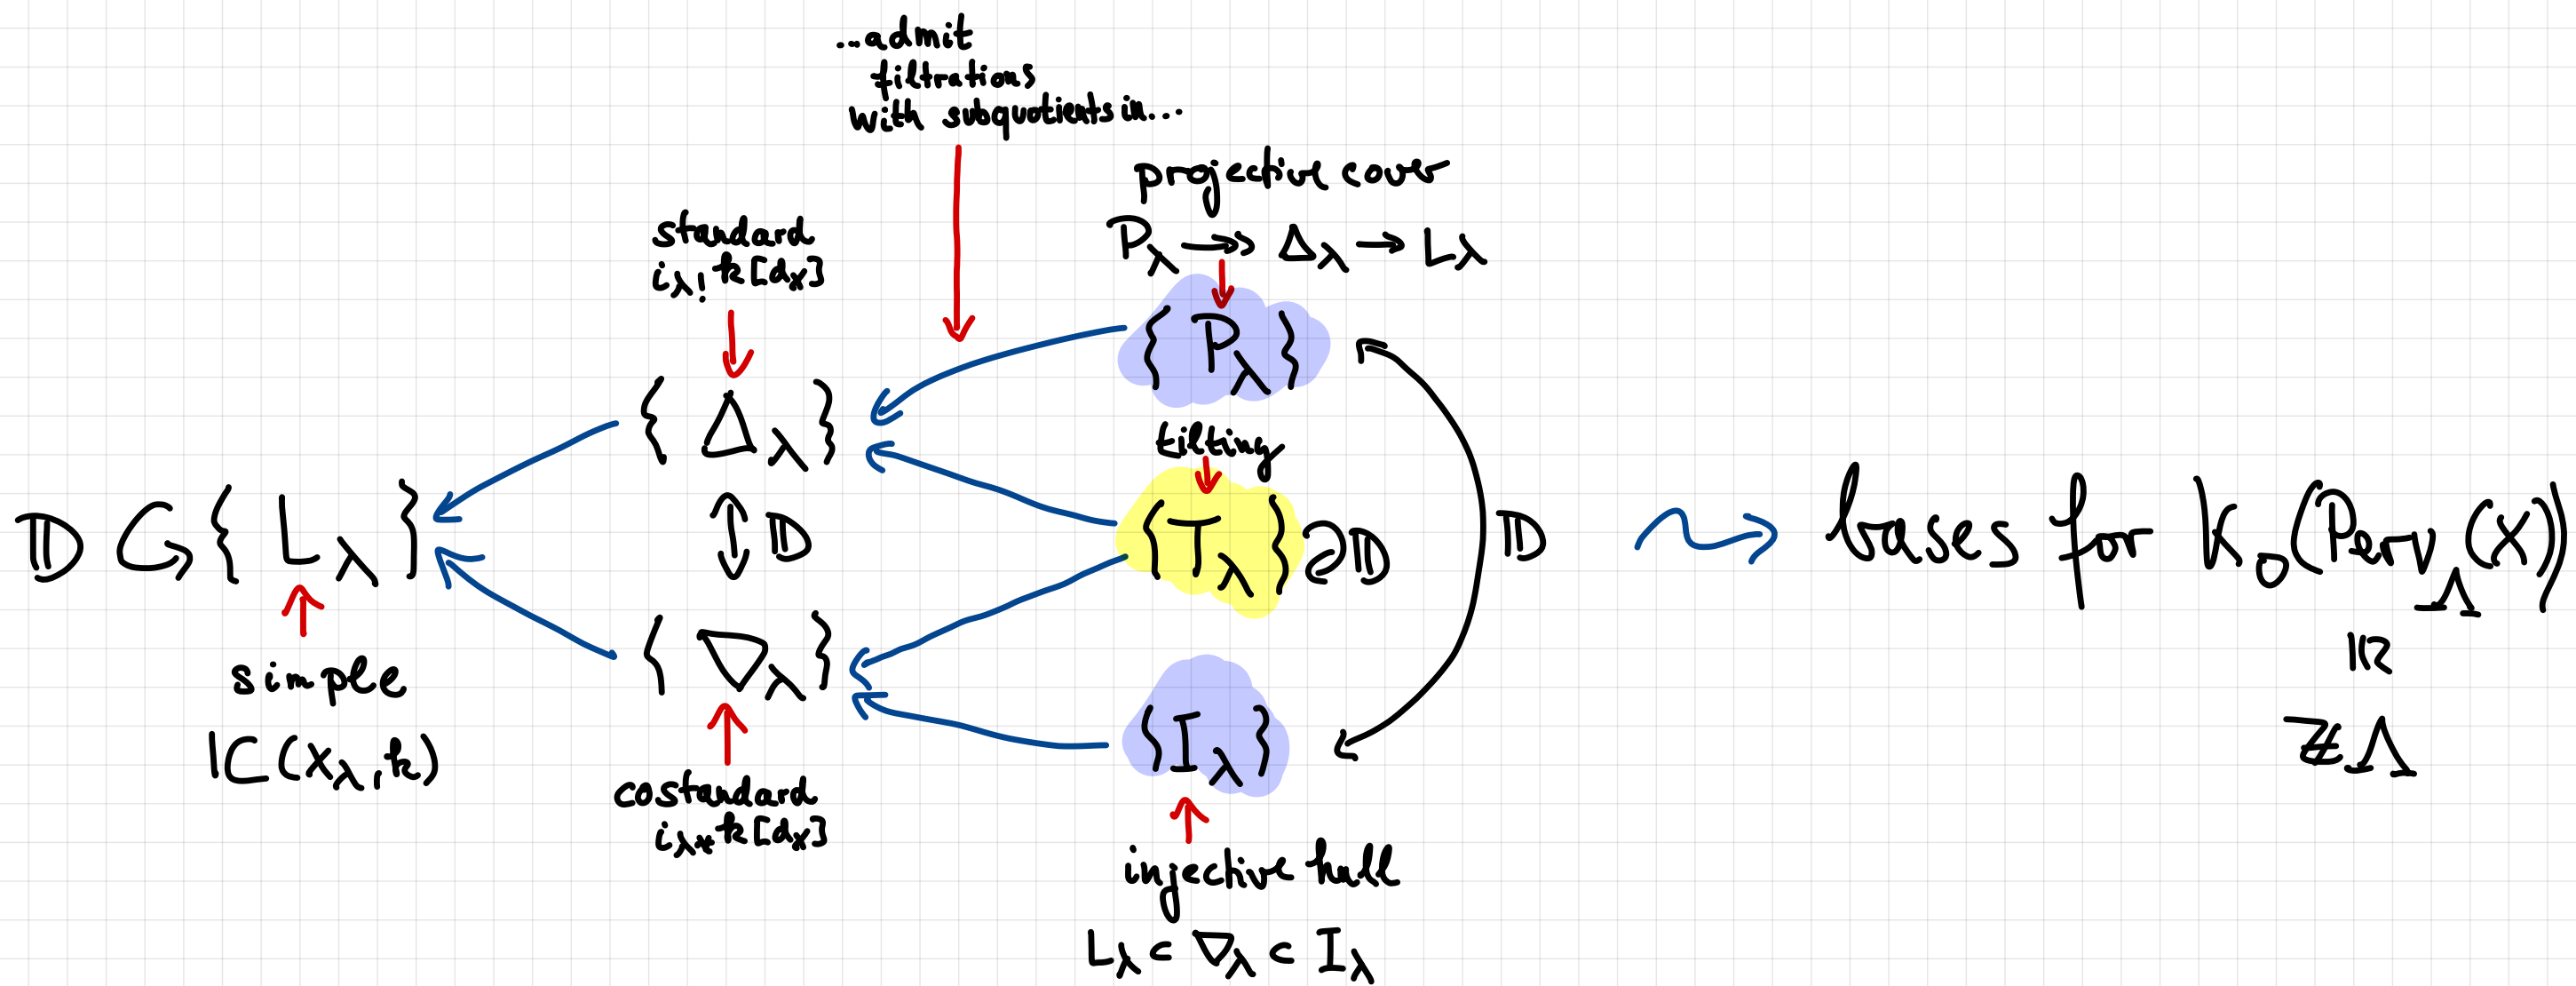 ...admit
filtrations
with subquotients in...
projective cover
P_λ ↠ Δ_λ → L_λ
standard
i_λ! k[d_λ]
{ P_λ }
{ Δ_λ }
tilting
𝔻 ↻ { L_λ }
↕ 𝔻
{ T_λ } ↺ 𝔻
𝔻
⇝ bases for K_0(Perv_Λ(X))
≅
ℤΛ
{ ∇_λ }
simple
IC(X_λ, k)
{ I_λ }
costandard
i_λ* k[d_λ]
injective hull
L_λ ⊂ ∇_λ ⊂ I_λ